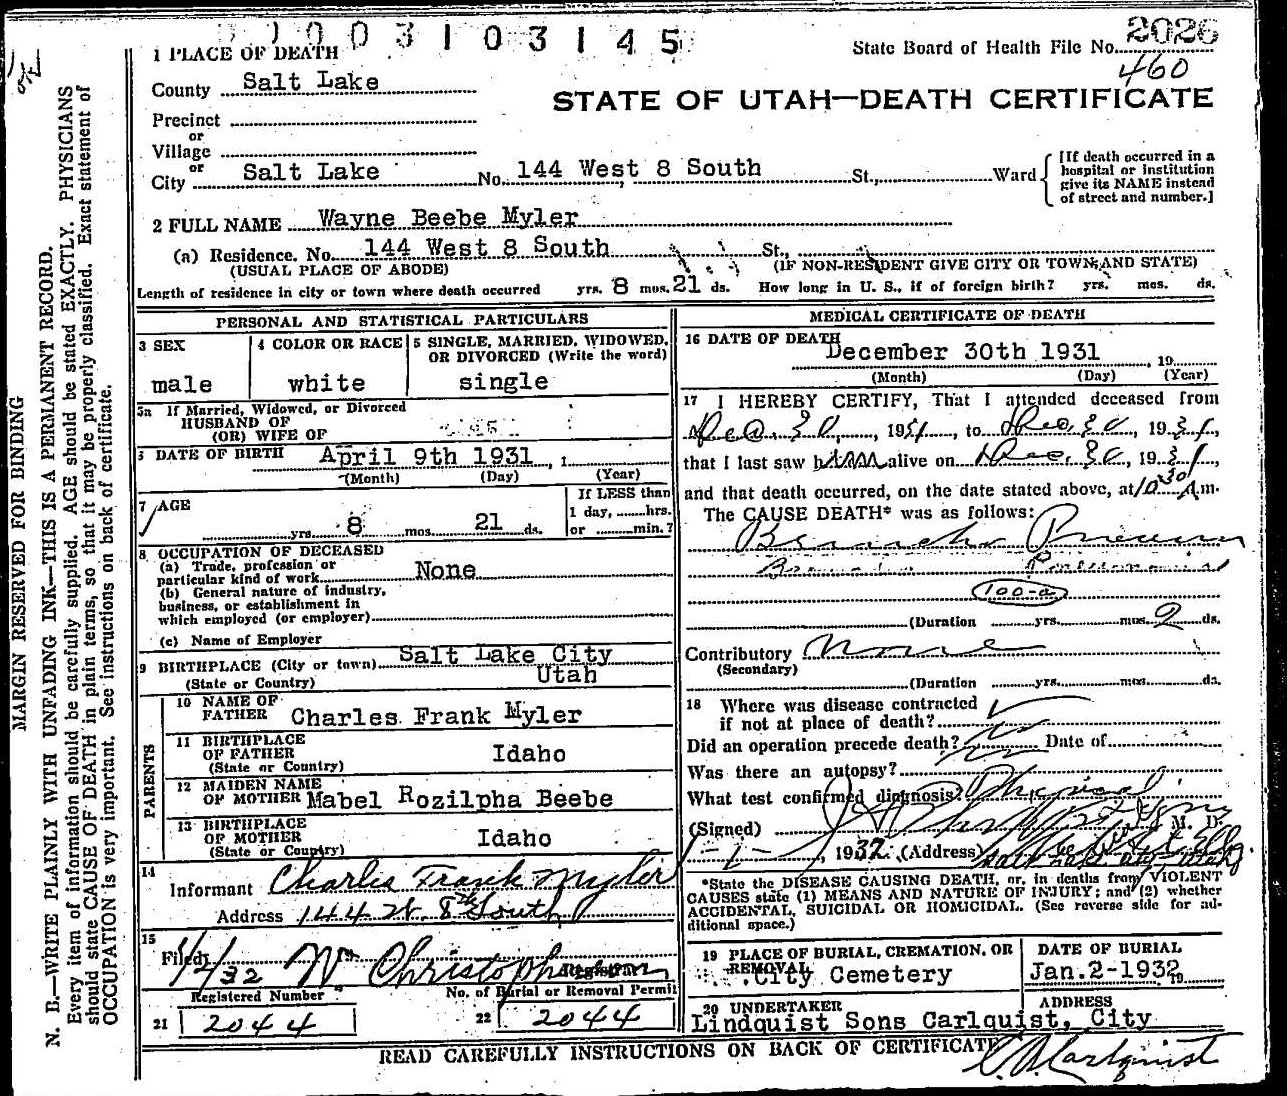 1003103145
State Board of Health File No. 2026
460
1 PLACE OF DEATH
County Salt Lake
STATE OF UTAH—DEATH CERTIFICATE
Precinct
or
Village
or
City Salt Lake No. 144 West 8 South St., Ward
[If death occurred in a hospital or institution give its NAME instead of street and number.]
2 FULL NAME Wayne Beebe Myler
(a) Residence. No. 144 West 8 South St.,
(USUAL PLACE OF ABODE) (IF NON-RESIDENT GIVE CITY OR TOWN, AND STATE)
Length of residence in city or town where death occurred yrs. 8 mos. 21 ds. How long in U. S., if of foreign birth? yrs. mos. ds.
MARGIN RESERVED FOR BINDING
N. B.—WRITE PLAINLY WITH UNFADING INK—THIS IS A PERMANENT RECORD.
Every item of information should be carefully supplied. AGE should be stated EXACTLY. PHYSICIANS
should state CAUSE OF DEATH in plain terms, so that it may be properly classified. Exact statement of
OCCUPATION is very important. See instructions on back of certificate.
PERSONAL AND STATISTICAL PARTICULARS
3 SEX
male
4 COLOR OR RACE
white
5 SINGLE, MARRIED, WIDOWED,
OR DIVORCED (Write the word)
single
5a If Married, Widowed, or Divorced
HUSBAND OF
(OR) WIFE OF
DATE OF BIRTH April 9th 1931, 1
(Month) (Day) (Year)
7 AGE
yrs. 8 mos. 21 ds.
If LESS than
1 day, hrs.
or min.?
8 OCCUPATION OF DECEASED
(a) Trade, profession or
particular kind of work None
(b) General nature of industry,
business, or establishment in
which employed (or employer)
(c) Name of Employer
9 BIRTHPLACE (City or town) Salt Lake City
(State or Country) Utah
PARENTS
10 NAME OF
FATHER Charles Frank Myler
11 BIRTHPLACE
OF FATHER Idaho
(State or Country)
12 MAIDEN NAME
OF MOTHER Mabel Rozilpha Beebe
13 BIRTHPLACE
OF MOTHER Idaho
(State or Country)
14
Informant Charles Frank Myler
Address 144 W. 8th South
15
Filed 1/2/32 Wm Christophersen
Registrar
Registered Number
21 2044
No. of Burial or Removal Permit
22 2044
MEDICAL CERTIFICATE OF DEATH
16 DATE OF DEATH
December 30th 1931, 19
(Month) (Day) (Year)
17 I HEREBY CERTIFY, That I attended deceased from
Dec. 30, 1931, to Dec. 30, 1931,
that I last saw him alive on Dec. 30, 1931,
and that death occurred, on the date stated above, at 10 30 A.m.
The CAUSE DEATH* was as follows:
Broncho Pneumonia
100-a
(Duration yrs. mos. 2 ds.
Contributory None
(Secondary)
(Duration yrs. mos. ds.
18 Where was disease contracted
if not at place of death?
Did an operation precede death? no Date of
Was there an autopsy? no
What test confirmed diagnosis? Physical
(Signed) M. D.
1-1-, 1932 (Address) Salt Lake City Utah
*State the DISEASE CAUSING DEATH, or, in deaths from VIOLENT
CAUSES state (1) MEANS AND NATURE OF INJURY; and (2) whether
ACCIDENTAL, SUICIDAL OR HOMICIDAL. (See reverse side for ad-
ditional space.)
19 PLACE OF BURIAL, CREMATION, OR
REMOVAL
City Cemetery
DATE OF BURIAL
Jan.2-1932 19
20 UNDERTAKER ADDRESS
Lindquist Sons Carlquist, City
READ CAREFULLY INSTRUCTIONS ON BACK OF CERTIFICATE
C. A. Carlquist